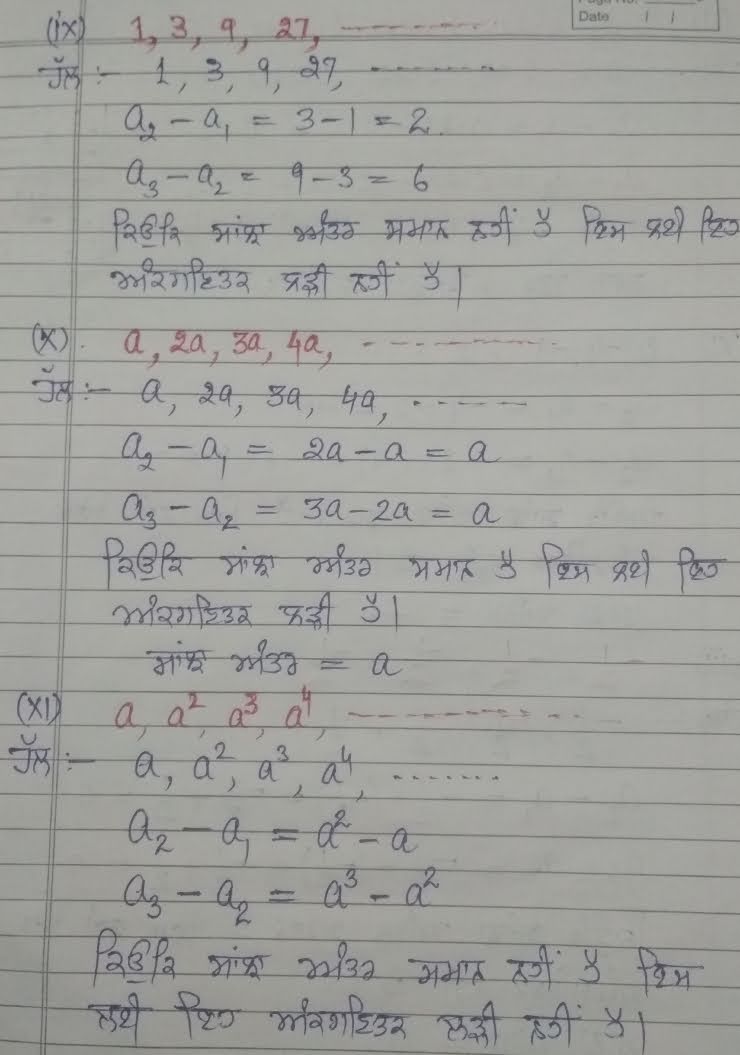 Page No.
Date / /
(ix) 1, 3, 9, 27, ----------
ਹੱਲ :- 1, 3, 9, 27, --------
a₂ - a₁ = 3 - 1 = 2.
a₃ - a₂ = 9 - 3 = 6
ਕਿਉਂਕਿ ਸਾਂਝਾ ਅੰਤਰ ਸਮਾਨ ਨਹੀਂ ਹੈ ਇਸ ਲਈ ਇਹ
ਅੰਕਗਣਿਤਕ ਲੜੀ ਨਹੀਂ ਹੈ।
(x). a, 2a, 3a, 4a, ----------
ਹੱਲ :- a, 2a, 3a, 4a, ------
a₂ - a₁ = 2a - a = a
a₃ - a₂ = 3a - 2a = a
ਕਿਉਂਕਿ ਸਾਂਝਾ ਅੰਤਰ ਸਮਾਨ ਹੈ ਇਸ ਲਈ ਇਹ
ਅੰਕਗਣਿਤਕ ਲੜੀ ਹੈ।
ਸਾਂਝਾ ਅੰਤਰ = a
(XI) a, a², a³, a⁴, ------------
ਹੱਲ :- a, a², a³, a⁴, .......
a₂ - a₁ = a² - a
a₃ - a₂ = a³ - a²
ਕਿਉਂਕਿ ਸਾਂਝਾ ਅੰਤਰ ਸਮਾਨ ਨਹੀਂ ਹੈ ਇਸ
ਲਈ ਇਹ ਅੰਕਗਣਿਤਕ ਲੜੀ ਨਹੀਂ ਹੈ।